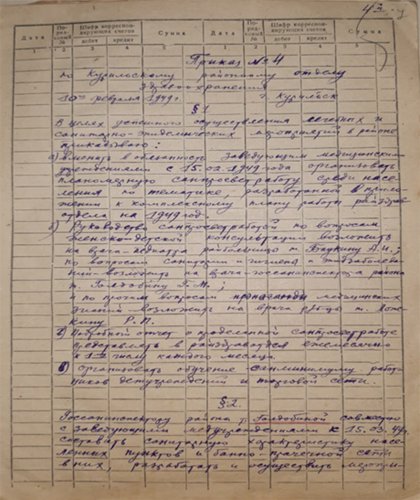 43
Дата По-ряд-ковый № Шифр корреспон-дирующих счетов Сумма Дата По-ряд-ковый № Шифр корреспон-дирующих счетов Сумма
дебет кредит дебет кредит
1 2 3 4 5 1 2 3 4 5
Приказ № 4
по Курильскому районному отделу
здравоохранения
10го февраля 1949 г. г. Курильск
§ 1
В целях успешного осуществления лечебных и
санитарно-эпидемических мероприятий в районе
приказываю:
вменить в обязанность заведующим медицинскими
учреждениями с 15.02.1949 года организовать
планомерную санпросветработу среди насе-
ления по тематике разработанной в прило-
жении к комплексному плану работ райздрав-
отдела на 1949 год.
Руководство санпросветработой по вопросам
женско-детской консультации возложить
на врача-педиатра райбольницы т.
по вопросам санитарии-гигиены и эпидзаболева-
ний возложить на врача-госсанинспектора района
т. Голдобину Г.М.;
и по прочим вопросам пропаганды медицинских
знаний возложить на врача р/б-цы т.
Р.П.
Подробный отчет о проделанной санпросветработе
представлять в райздравотдел ежемесячно
к числу каждого месяца.
Организовать обучение сан.минимуму работ-
ников детучреждений и торговой сети.
§ 2
Госсанинспектору района т. Голдобиной совместно
с заведующими медучреждениями к 15.03.49 г.
составить санитарную характеристику насе-
ленных пунктов и банно-прачечной сети
в них, разработать и осуществить меропри-